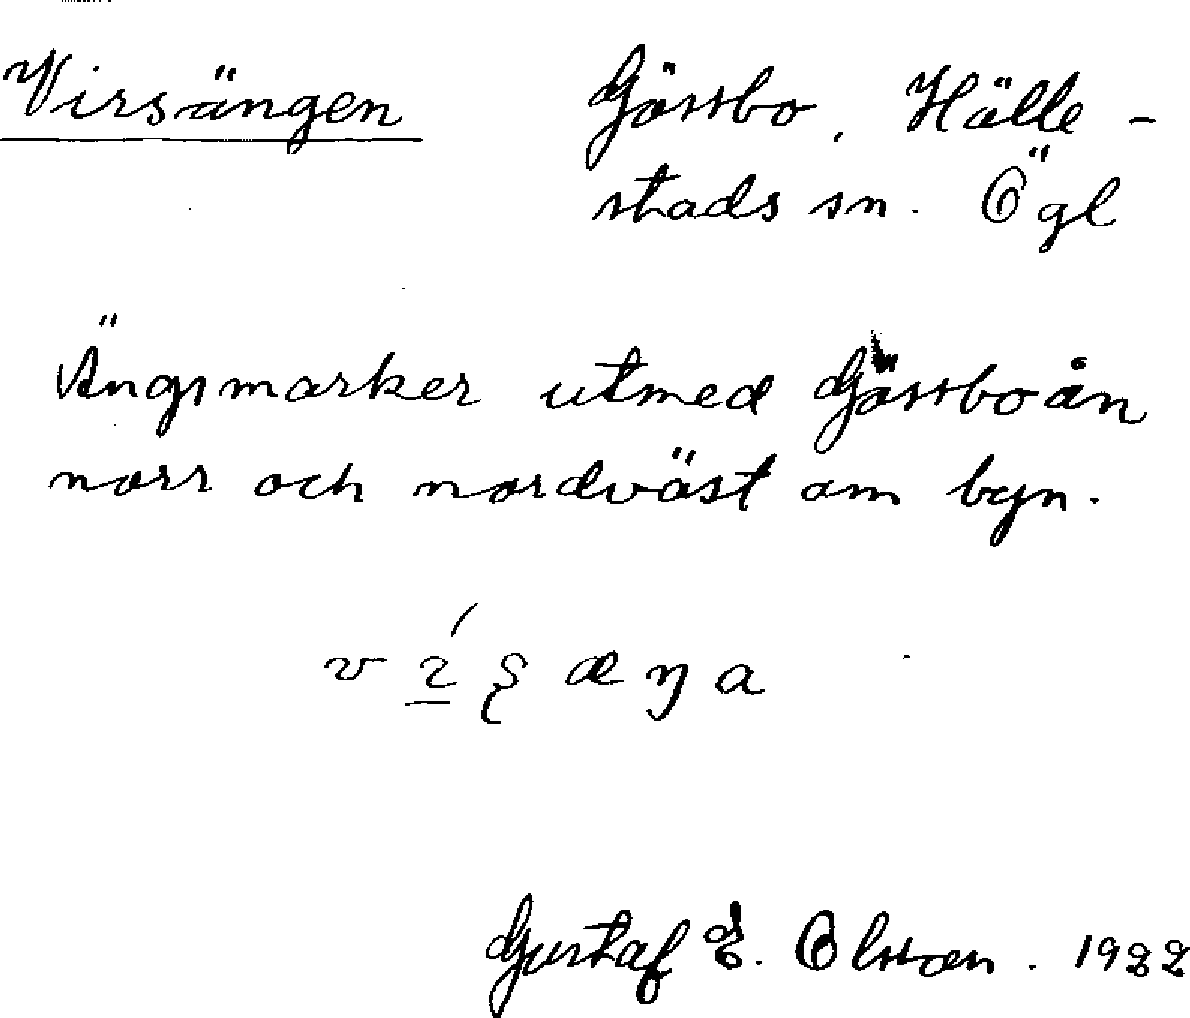 Virsängen
Gössbo, Hälle-
stads sn. Ögl
Ängsmarker utmed Gössboån
norr och nordväst om byn.
Gustaf E. Olsson. 1922